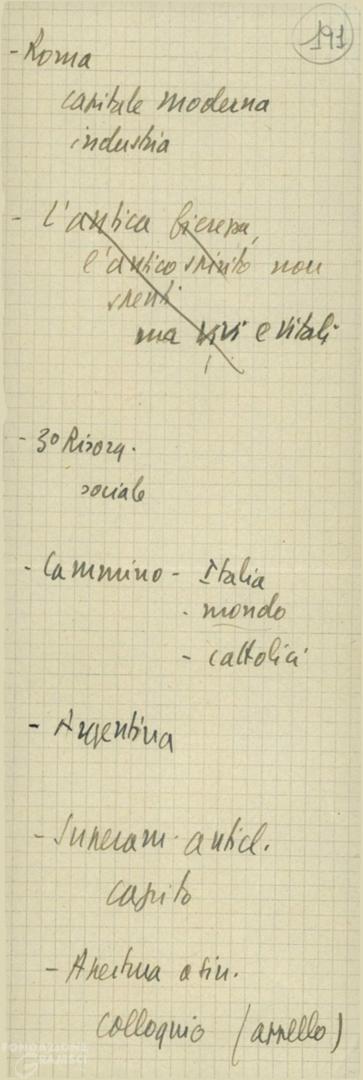 191
- Roma
capitale moderna
industria
- L'antica fierezza,
l'antico spirito non
spenti
ma vivi e vitali
- 3º Risorg.
sociale
- Cammino - Italia
- mondo
- cattolici
- Argentina
- Superam. anticl.
capito
- Apertura a sin.
colloquio (appello)
FONDAZIONE
GRAMSCI